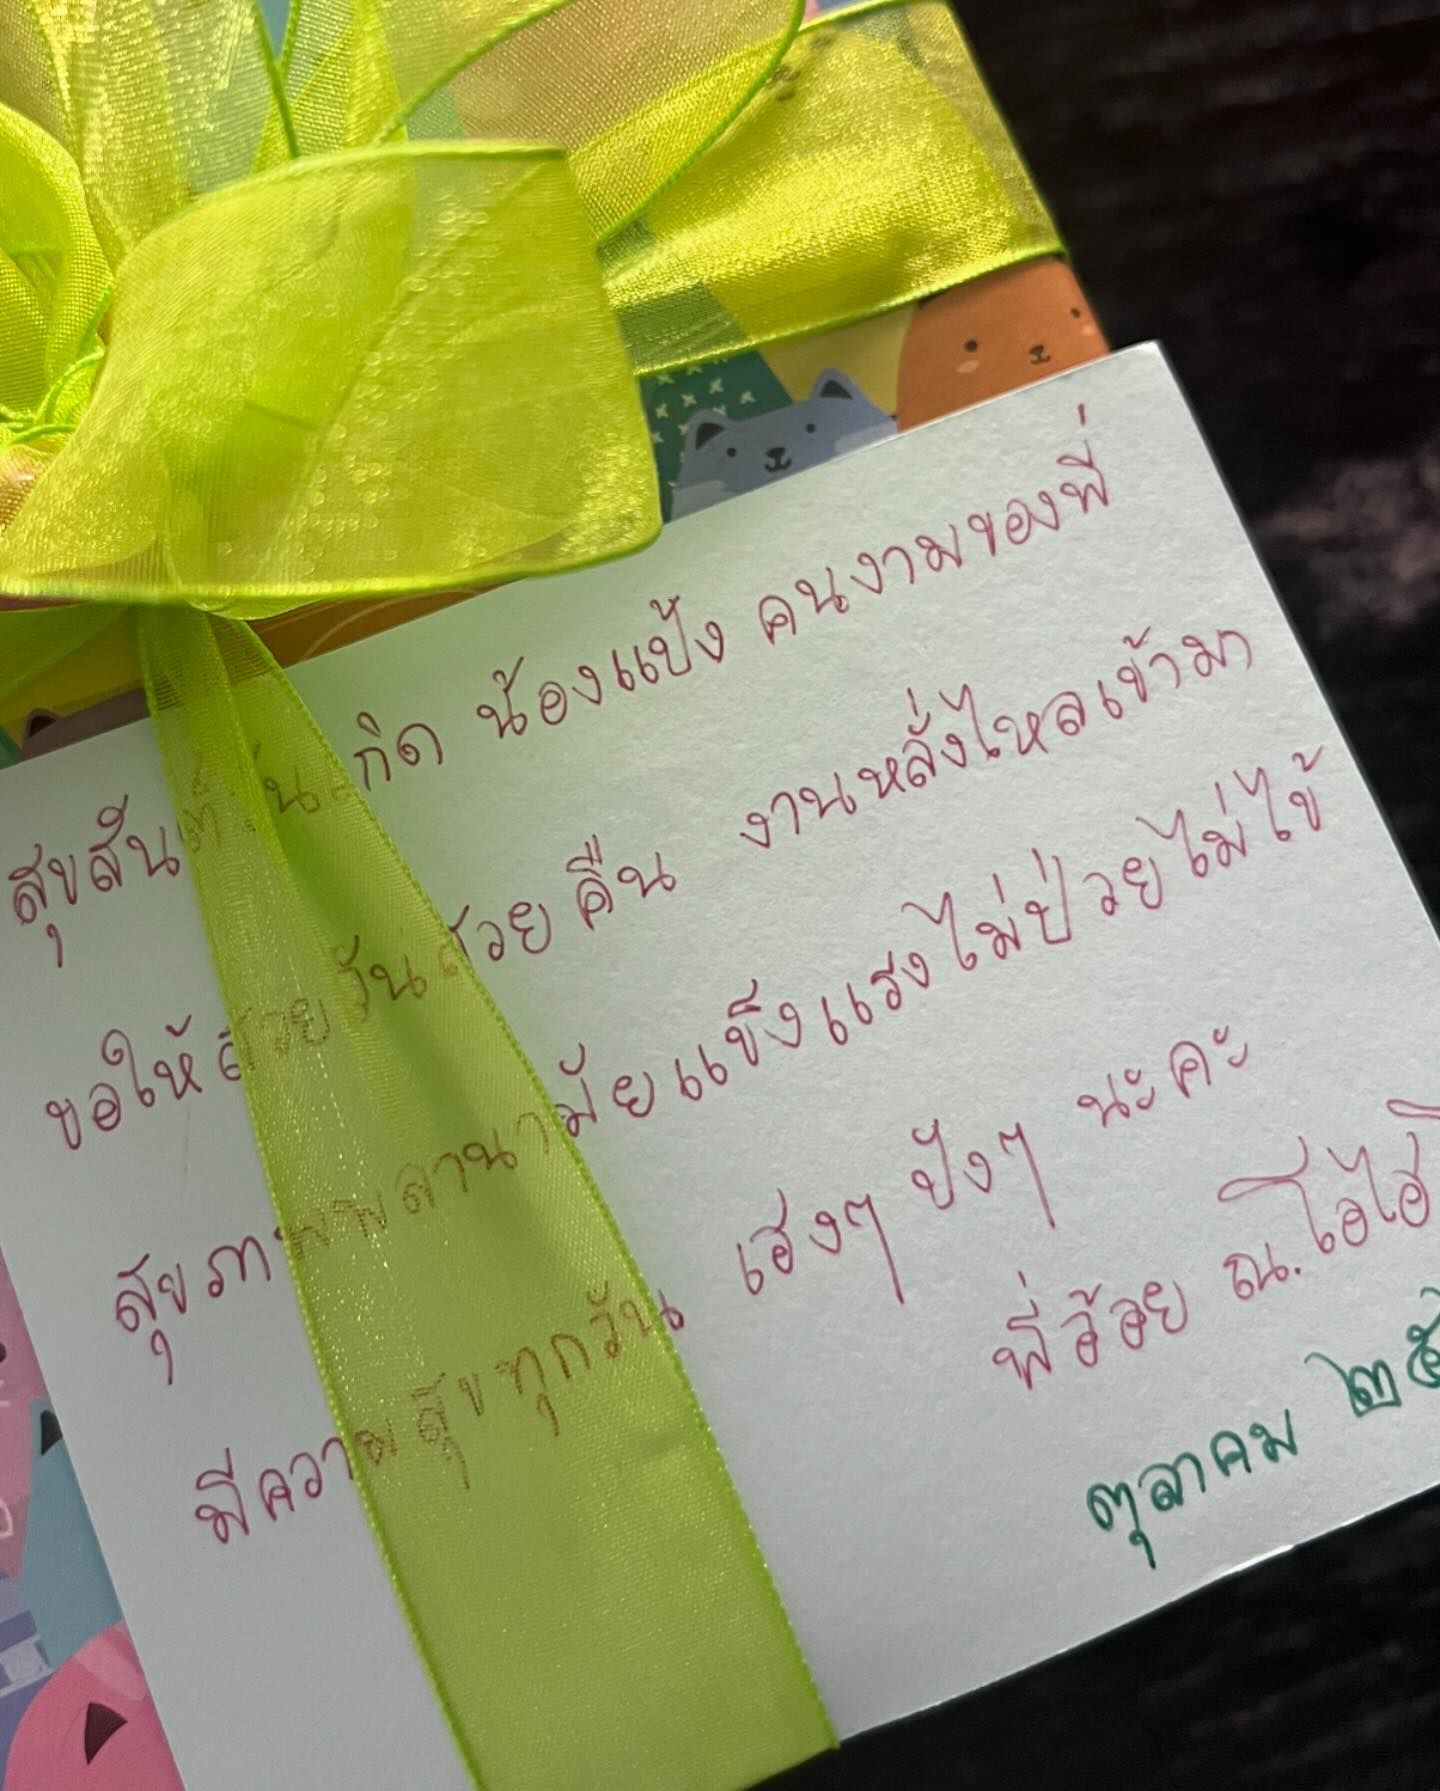 สุขสันต์วันเกิด น้องแป้ง คนงามของพี่
ขอให้สวยวันสวยคืน งานหลั่งไหลเข้ามา
สุขภาพพลานามัยแข็งแรงไม่ป่วยไม่ไข้
มีความสุขทุกวัน เฮงๆ ปังๆ นะคะ
พี่อ้อย ณ.
ตุลาคม